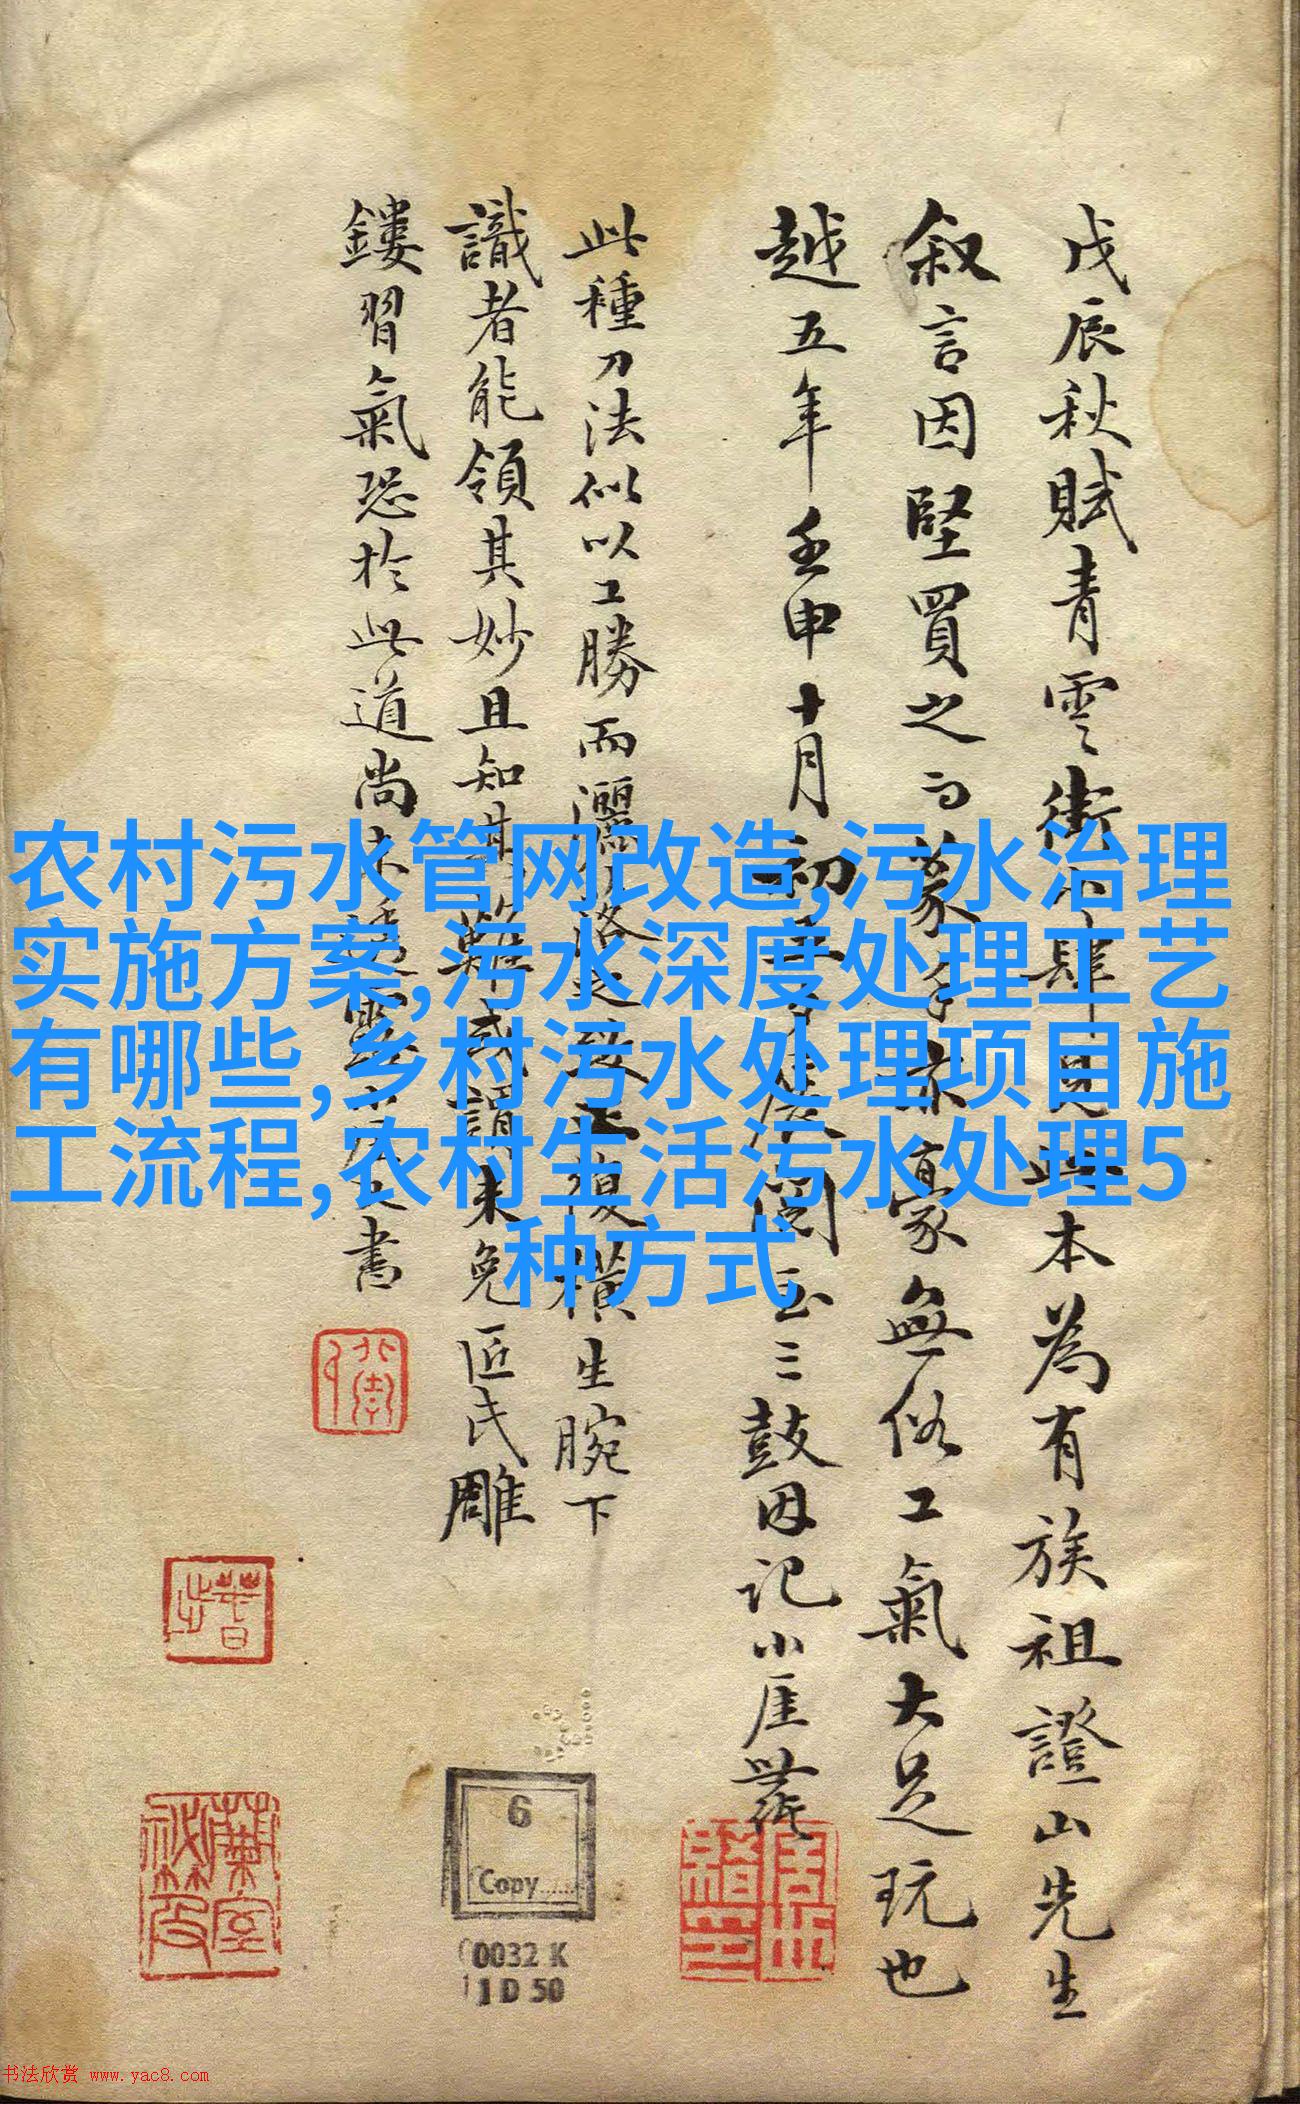 戊辰秋賦青雲街小肆見此本為有族祖證山先生
叙言因堅買之
豪無俗工氣大足玩也
越五年壬申十月初
閱至三鼓因記小厓
此種刀法似以工勝而灑落之致
復橫生腕下
識者能領其妙且知其難或謂未免匠氏雕
鏤習氣恐於此道尚未
書
农村污水管网改造,污水治理
实施方案,污水深度处理工艺
有哪些,乡村污水处理项目施
工流程,农村生活污水处理5
种方式
6
Copy
0032 K
1 D 50
书法欣赏 www.yac8.com